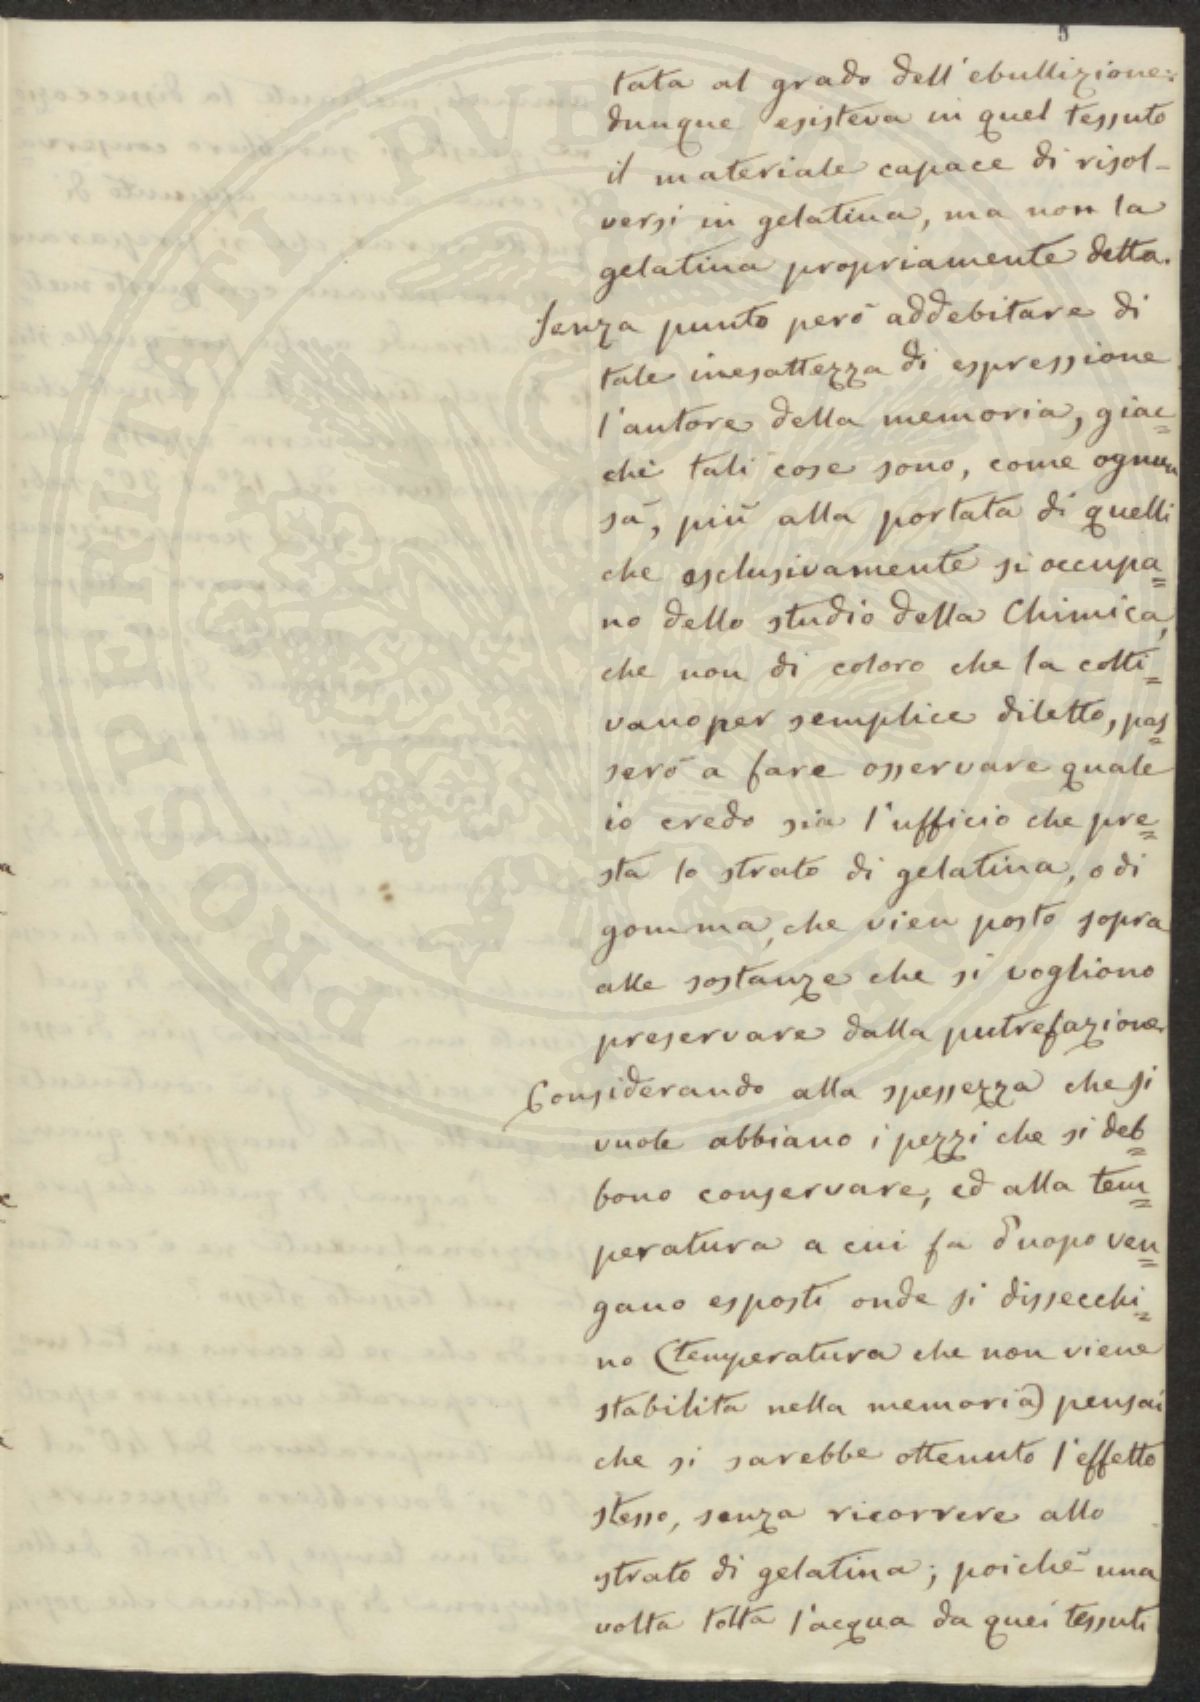 5
tata al grado dell'ebullizione:
dunque esisteva in quel tessuto
il materiale capace di risol-
versi in gelatina, ma non la
gelatina propriamente detta.
Senza punto però addebitare di
tale inesattezza di espressione
l'autore della memoria, giac=
chè tali cose sono, come ognun
sà, più alla portata di quelli
che esclusivamente si occupa=
no dello studio della Chimica,
che non di coloro che la colti=
vano per semplice diletto, pas=
serò a fare osservare quale
io credo sia l'ufficio che pre=
sta lo strato di gelatina, o di
gomma, che vien posto sopra
alle sostanze che si vogliono
preservare dalla putrefazione.
Considerando alla spessezza che si
vuole abbiano i pezzi che si deb=
bono conservare, ed alla tem=
peratura a cui fa d'uopo ven=
gano esposti onde si dissecchi=
no (temperatura che non viene
stabilita nella memoria) pensai
che si sarebbe ottenuto l'effetto
stesso, senza ricorrere allo
strato di gelatina; poichè una
volta tolta l'acqua da quei tessuti
PROSPERITATI PVBLICAE